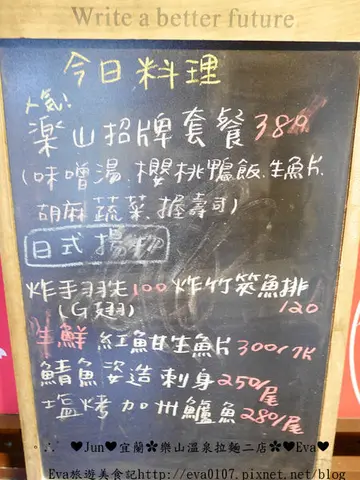 Write a better future
今日料理
人氣!
楽山招牌套餐380
(味噌湯.櫻桃鴨飯.生魚片
胡麻蔬菜.握壽司)
日式揚物
炸手羽先100 炸竹筴魚排
(G翅) 120
生鮮 紅魽生魚片300/7片
鯖魚姿造刺身250/尾
塩烤加州鱸魚280/尾
♥Jun♥宜蘭✿樂山溫泉拉麵二店✿♥Eva♥
Eva旅遊美食記http://eva0107.pixnet.net/blog